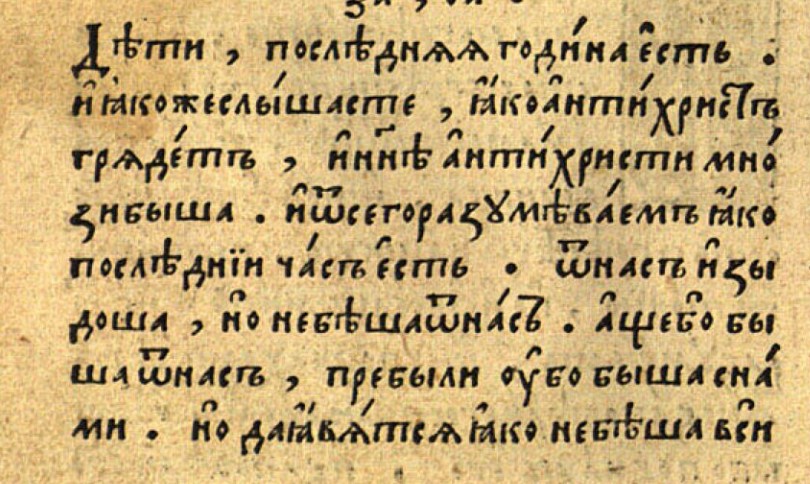 Дѣти , послѣдняѧ годи́на є҆сть .
и҆ ꙗкоже слы́шасте , ꙗ҆́ко а҆нти́христъ
грѧде́тъ , и҆ нн҃ѣ а҆нти́христи мно́
зи быша . и҆ ѿ сего разꙋмѣва́емъ ꙗ҆́ко
послѣднїи ча́съ є҆сть . ѿ насъ и҆зы
доша , но̑ не бѣша ѿ на́съ . а҆ще бо̑ бы
ша ѿ насъ , пребыли ᲂу҆бо быша с на́
ми . но̑ да ꙗ҆вѧ́тсѧ ꙗ҆́ко не бѣша вси̑